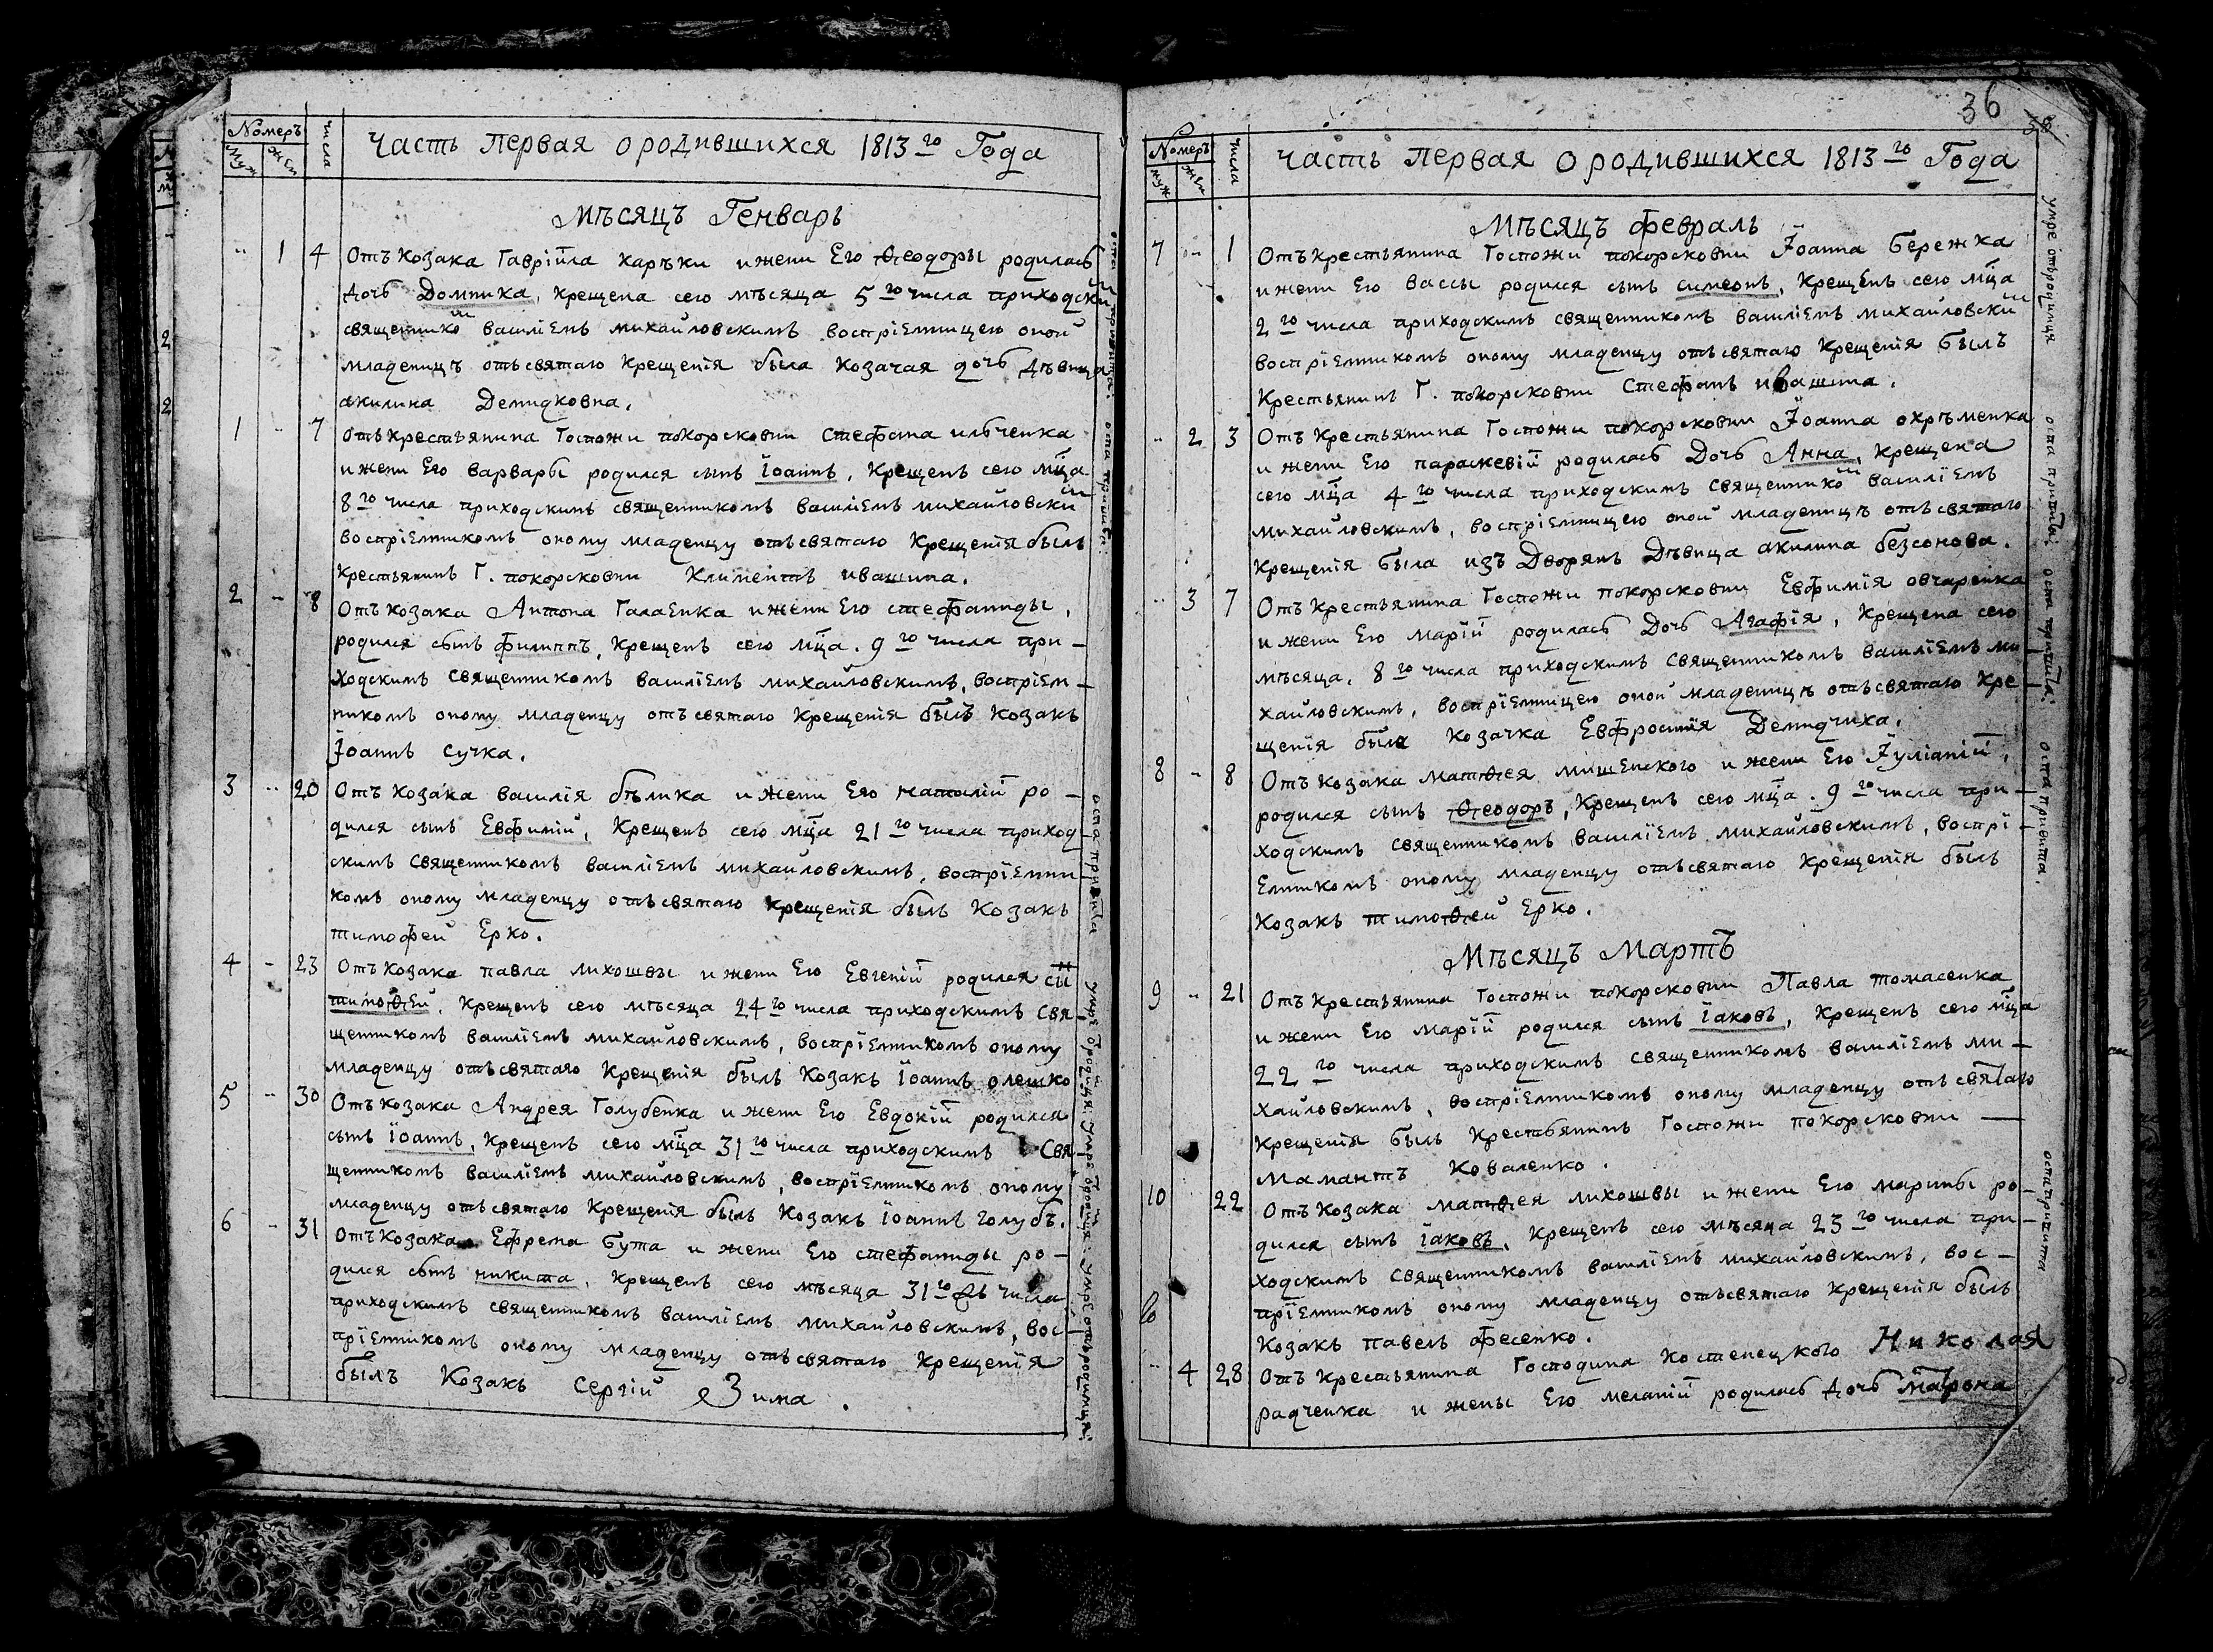 Номеръ
Муж
Жен
числа
Часть первая о родившихся 1813го Года
Мѣсяцъ Генварь
" 1 4 Отъ козака Гавріила Каръки и жени Его Ѳеодоры родилась
дочь Домника, крещена сего мѣсяца 5го числа приходски
священникомъ василіемъ михайловскимъ воспріемницею оной
младеницѣ отъ святаго крещенія была козачая дочь дѣвица
акилина Демидковна.
1 " 7 отъ крестьянина Госпожи покорсковни стефана ильченка
и жени Его варвары родился сынъ Іоаннъ, крещенъ сего мца
8го числа приходскимъ священникомъ василіемъ михайловским
воспріемникомъ оному младенцу отъ святаго крещенія былъ
крестьянинъ Г. покорсковни Климентъ ивашина.
2 " 8 Отъ козака Антона Галаенка и жени Его стефаниды,
родился сынъ филиппъ, крещенъ сего мца. 9го числа при-
ходскимъ священникомъ василіемъ михайловскимъ, воспріем-
никомъ оному младенцу отъ святаго крещенія былъ козакъ
Іоаннъ сучка.
3 " 20 Отъ козака василія бѣлика и жени Его наталій ро-
дился сынъ Евфимій, крещенъ сего мца 21го числа приход
скимъ священникомъ василіемъ михайловскимъ, воспріемни
комъ оному младенцу отъ святаго крещенія былъ козакъ
тимофей Ерко.
4 - 23 Отъ козака павла лихошвы и жени Его Евгеній родился сы
тимоѳей. крещенъ сего мѣсяца 24го числа приходскимъ свя-
щенникомъ василіемъ михайловскимъ, воспріемникомъ оному
младенцу отъ святаго крещенія былъ козакъ Іоаннъ олешко
5 " 30 Отъ козака Андрея Голубенка и жени Его Евдокій родился
сынъ Іоаннъ, крещенъ сего мца 31го числа приходскимъ свя-
щенникомъ василіемъ михайловскимъ, воспріемникомъ оному
младенцу отъ святаго крещенія былъ козакъ Іоаннъ голубъ.
6 - 31 Отъ козака Ефрема бута и жени Его стефаниды ро-
дился сынъ никита, крещенъ сего мѣсяца 31го числа
приходскимъ священникомъ василіемъ михайловскимъ, вос-
пріемникомъ оному младенцу отъ святаго крещенія
былъ козакъ Сергій Зима.
оспа привита.
оспа привита.
оспа привита
умре отъ родимця.
умре отъ родимця.
умре отъ родимця.
36
38
Номеръ
муж
жен
числа
часть первая о родившихся 1813го Года
Мѣсяцъ февраль
7 " 1 Отъ крестьянина Госпожи покорсковни Іоанна бережка
и жени Его вассы родился сынъ симеонъ, крещенъ сего мца
2го числа приходскимъ священникомъ василіемъ михайловским
воспріемникомъ оному младенцу отъ святаго крещенія былъ
крестьянинъ Г. покорсковни Стефанъ ивашина.
" 2 3 Отъ крестьянина Госпожи покорсковни Іоанна охрѣменка
и жени Его параскевій родилась Дочь Анна, крещена
сего мца 4го числа приходскимъ священникомъ василіемъ
михайловскимъ, воспріемницею оной младеницѣ отъ святаго
крещенія была изъ Дворянъ Дѣвица акилина безсонова.
" 3 7 Отъ крестьянина Госпожи покорсковни Евфимія овчаренка
и жени Его марій родилась Дочь Агафія, крещена сего
мѣсяца. 8го числа приходскимъ священникомъ василіемъ ми
хайловскимъ, воспріемницею оной младеницѣ отъ святаго кре-
щенія была козачка Евфросинія Демидчиха.
8 " 8 Отъ козака матѳея мишенского и жени Его Іуліаній,
родился сынъ Ѳеодоръ, крещенъ сего мца. 9го числа при-
ходскимъ священникомъ василіемъ михайловскимъ, воспрі-
емникомъ оному младенцу отъ святаго крещенія былъ
козакъ тимоѳей Ерко.
Мѣсяцъ Мартъ
9 " 21 Отъ крестьянина Госпожи покорсковни Павла томасенка
и жени Его марій родился сынъ Іаковъ, крещенъ сего мца
22го числа приходскимъ священникомъ василіемъ ми-
хайловскимъ, воспріемникомъ оному младенцу отъ святаго
крещенія былъ крестьянинъ Госпожи покорсковни
Мамантъ Коваленко.
10 22 Отъ козака матѳея лихошвы и жени Его марины ро-
дился сынъ Іаковъ, крещенъ сего мѣсяца 23го числа при-
ходскимъ священникомъ василіемъ михайловскимъ, вос-
пріемникомъ оному младенцу отъ святаго крещенія былъ
козакъ павелъ фесенко.
" 4 28 Отъ крестьянина Господина Костенецкого Николая
радченка и жены Его меланій родилась дочь матрона
умре отъ родимця
оспа привита.
оспа привита.
оспа привита.
оспа привита